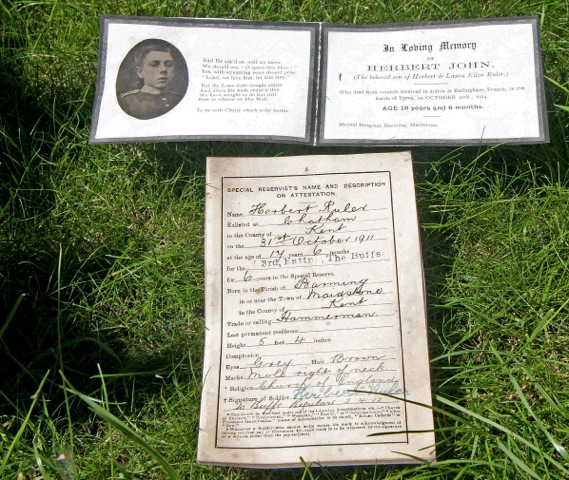 Had He ask'd us, well we know
We should cry, "O spare this blow!"
Yes, with streaming tears should pray,
"Lord, we love him, let him stay."
But the Lord doth nought amiss,
And, since He hath order'd this,
We have nought to do but still
Rest in silence on His Will.
To be with Christ which is far better
In Loving Memory
OF
HERBERT JOHN,
(The beloved son of Herbert & Laura Ellen Ruler.)
Who died from wounds received in action at Radinghem, France, in the
battle of Ypres, on OCTOBER
AGE 18 years and 6 months.
Mental Hospital, Barming, Maidstone.
5
SPECIAL RESERVIST'S NAME AND DESCRIPTION
ON ATTESTATION.
Name Herbert Ruler
Enlisted at Chatham
in the County of Kent
on the 31st October 1911
at the age of 17 years 6 months
for the 3rd, Battn., The Buffs
for 6 years in the Special Reserve.
Born in the Parish of Barming
in or near the Town of Maidstone
in the County of Kent
Trade or calling Hammerman
Last permanent residence
Height 5 feet 4 inches
Complexion
Eyes Grey Hair Brown
Marks Mole right of neck
* Religion Church of England
† Signature of Soldier Herbert Ruler
To Buffs Regulars